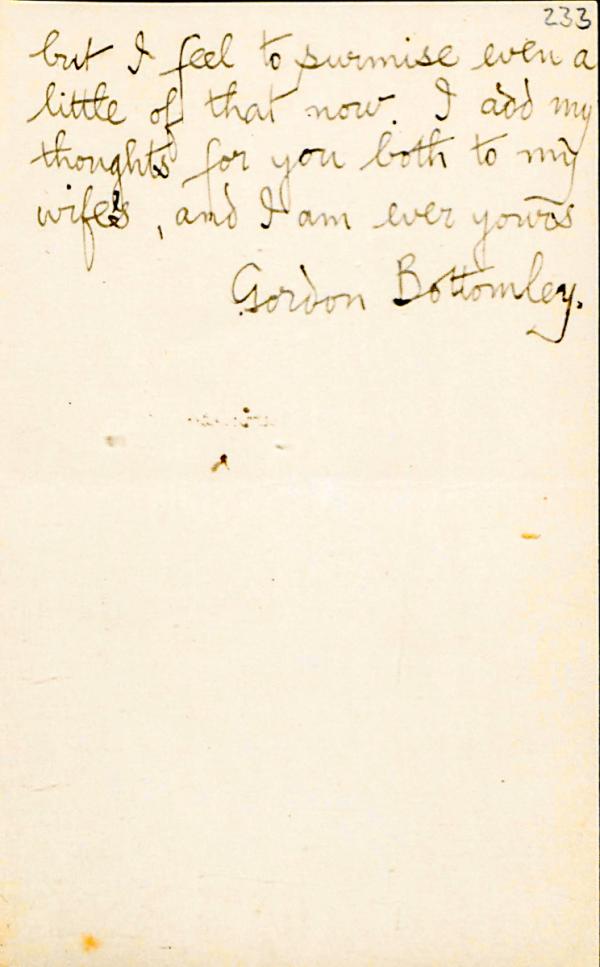 233
but I feel to surmise even a
little of that now. I add my
thoughts for you both to my
wife's, and I am ever yours
Gordon Bottomley.